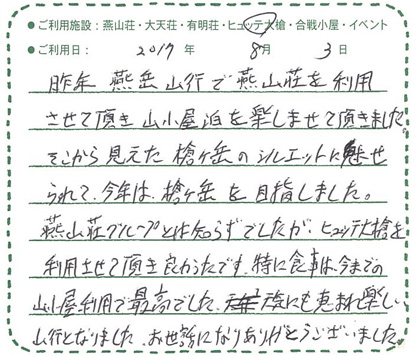 ●ご利用施設：燕山荘・大天荘・有明荘・ヒュッテ大槍・合戦小屋・イベント
●ご利用日： 2017 年 8月 3 日
昨年 燕岳 山行で 燕山荘を 利用
させて頂き 山小屋泊を楽しませて頂きました。
そこから 見えた 槍ヶ岳の シルエットに魅せ
られて、今年は、槍ヶ岳 を 目指しました。
燕山荘グループとは知らずでしたが、ヒュッテ大槍を
利用させて頂き良かったです。特に食事は今までの
山小屋利用で最高でした。 にも恵まれ楽しい
山行となりました。お世話になりありがとうございました。